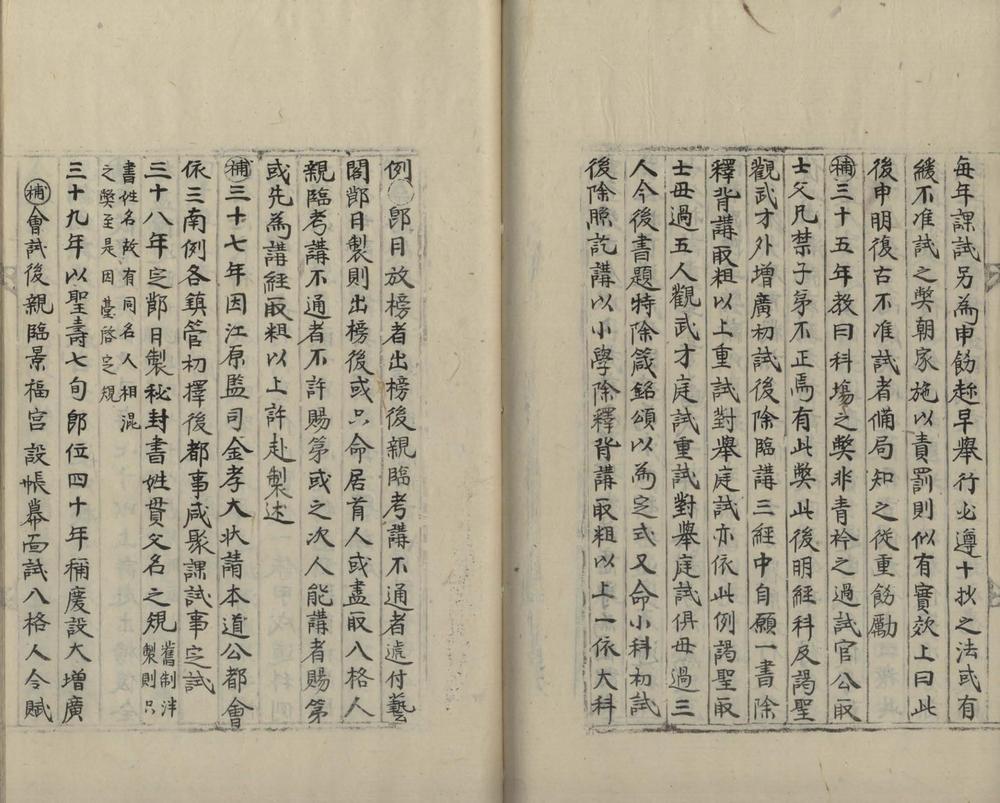 每年課試另為申飭趂早舉行必遵十抄之法或有
緩不准試之獘朝家施以責罰則似有實效上曰此
後申明復古不准試者備局知之從重飭勵
補三十五年教曰科塲之獘非青衿之過試官公取
士父兄禁子弟不正焉有此獘此後明經科及謁聖
觀武才外增廣初試後除臨講三經中自願一書除
釋背講取粗以上重試對舉庭試亦依此例謁聖取
士毋過五人觀武才庭試重試對舉庭試俱毋過三
人今後書題特除箴銘頌以為定式又命小科初試
後除照訖講以小學除釋背講取粗以上一依大科
例卽日放榜者出榜後親臨考講不通者還付藝
閣節日製則出榜後或只命居首人或盡取入格人
親臨考講不通者不許賜第或之次人能講者賜第
或先為講經取粗以上許赴製述
補三十七年因江原監司金孝大狀請本道公都會
依三南例各鎮管初擇後都事咸聚課試事定試
三十八年定節日製秘封書姓貫父名之規
舊制泮
製則只
書姓名故有同名人相混
之獘至是因臺啓定規
三十九年以聖壽七旬卽位四十年稱慶設大增廣
補會試後親臨景福宮設帳幕面試入格人令賦